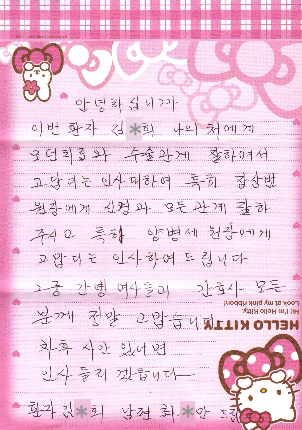 안녕하십니까
이번 환자 김*희 나의 처에게
모던회료와 수술관계 활하여서
고맙다는 인사며하여 특히
원장에게 신경과 모든 관계 활하
주시고 특히 양병세 원장에게
고맙다는 인사하여 드립니다
그중 간병 여사들과 간호사 모든
분께 정말 고맙습니다
차후 시간 있너면
인사 들리 겠읍니다
환자 김*희 남편 최*안 드림
HELLO KITTY
Hi! I'm Hello Kitty.
Look at my pink ribbon!